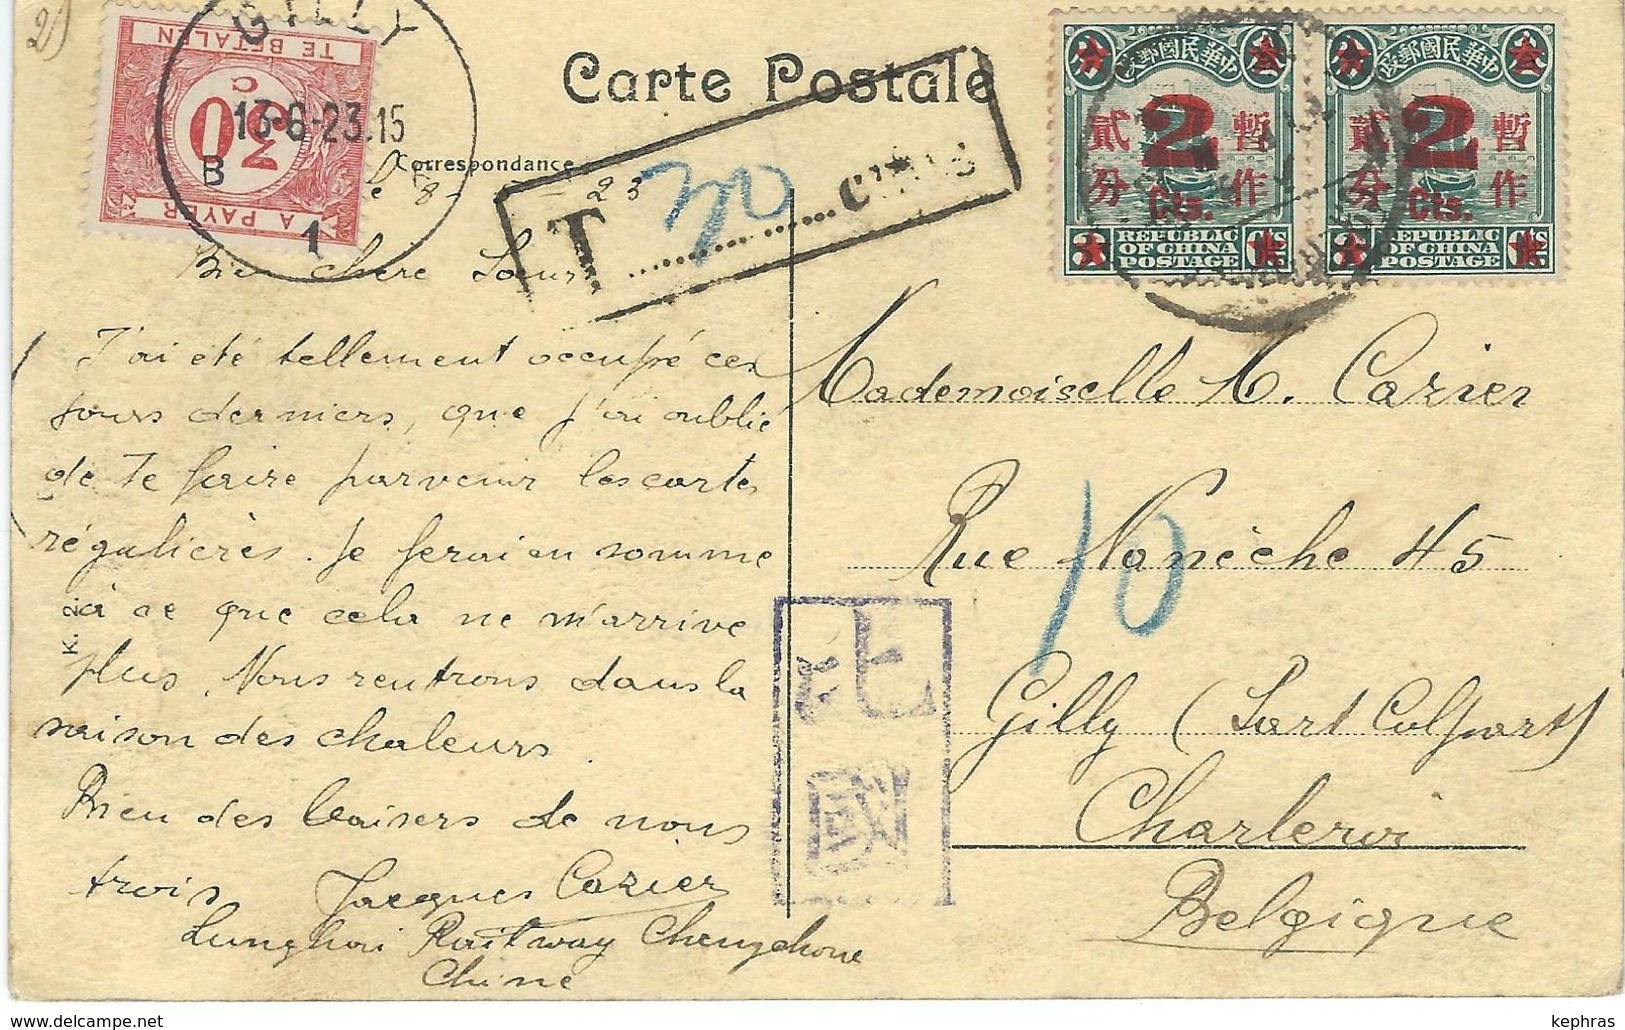 2)
GILLY
TE BETALEN
30 C
A PAYER
13-6-23.15
B 1
Carte Postale
Correspondance
Le 8- 23
T 20 CTMS
中華民國郵政
暫作
2
貳分
Cts.
REPUBLIC
OF CHINA
POSTAGE
中華民國郵政
暫作
2
貳分
Cts.
REPUBLIC
OF CHINA
POSTAGE
Bien chère Soeur
J'ai été tellement occupé ces
jours derniers, que j'ai oublié
de Te faire parvenir les cartes
régulières. Je ferai en somme
à ce que cela ne m'arrive
plus. Nous rentrons dans la
saison des chaleurs.
Bien des baisers de nous
trois Jacques Cazier
Lunghai Railway Chengchow
Chine
Mademoiselle M. Cazier
Rue Nanèche 45
10
Gilly (Sart Culpart)
Charleroi
Belgique
kephras
delcampe.net